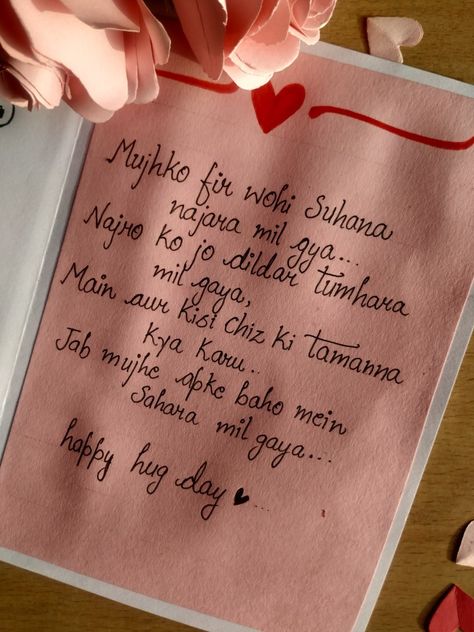 Mujhko fir wohi Suhana
najara mil gya...
Najro ko jo dildar tumhara
mil gaya,
Main aur kisi chiz ki tamanna
kya karu..
Jab mujhe apke baho mein
Sahara mil gaya...
happy hug day ♥...